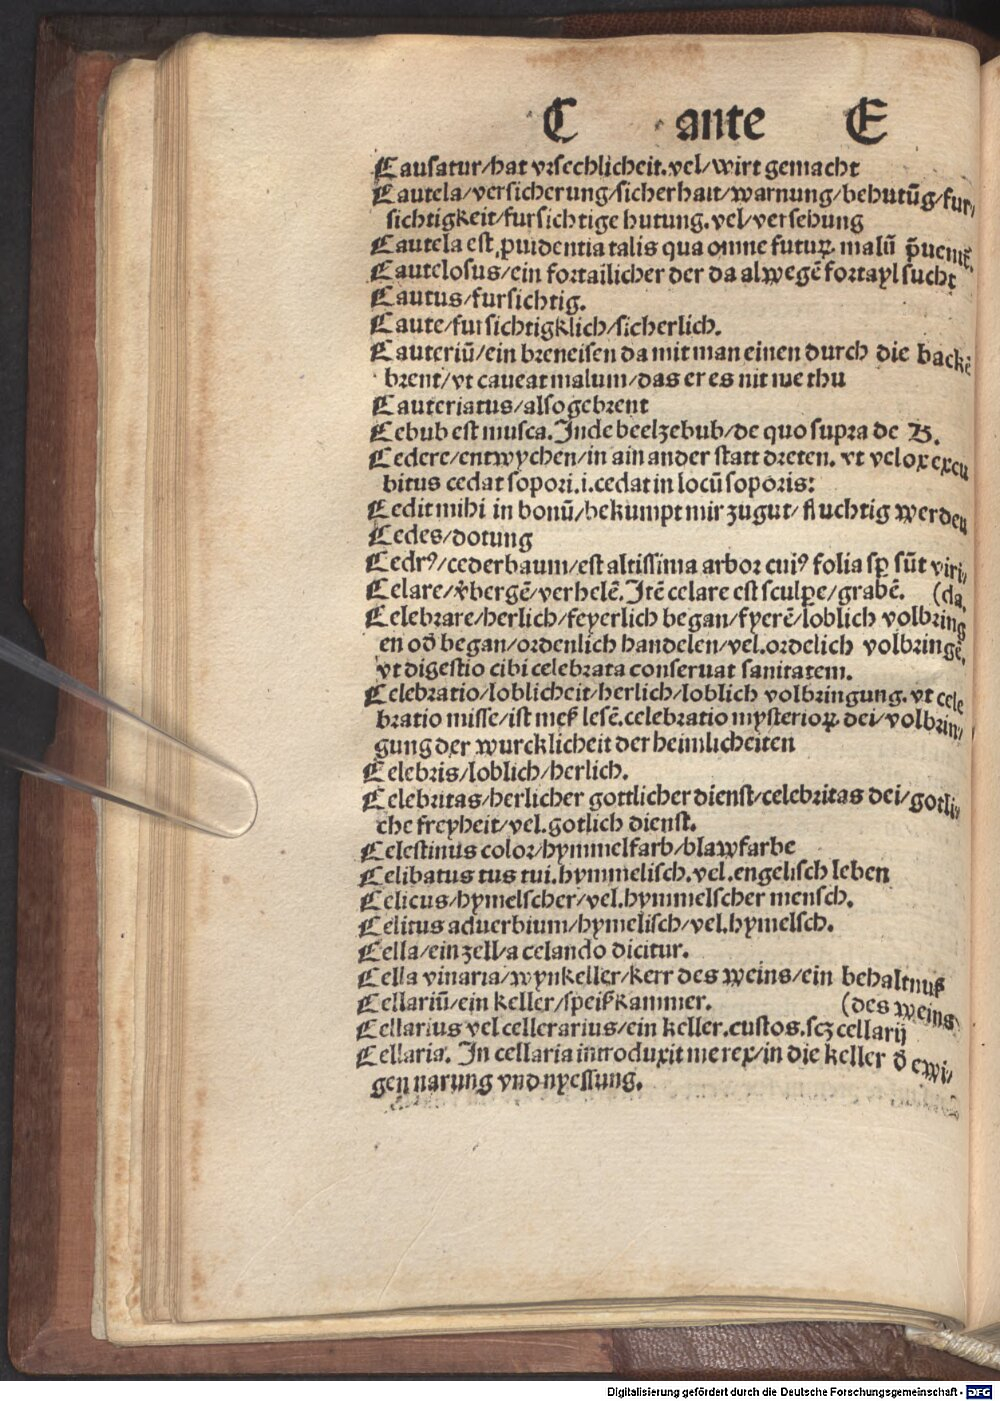 C ante E
Causatur/hat vrsechlicheit.vel/wirt gemacht
Cautela/versicherung/sicherhait/warnung/behutūg/fur/
sichtigkeit/fursichtige hutung.vel/versehung
Cautela est ꝓuidentia talis qua omne futuꝝ malū p̄ueniř.
Cautelosus/ein fortailicher der da alwegē fortayl sucht
Cautus/fursichtig.
Caute/fursichtigklich/sicherlich.
Cauteriū/ein breneisen da mit man einen durch die backē
brent/vt caueat malum/das er es nit me thu
Cauteriatus/also gebrent
Cebub est musca.Inde beelzebub/de quo supra de B.
Cedere/entwychen/in ain ander statt dreten. vt velox excu
bitus cedat sopori.i.cedat in locū soporis:
Cedit mihi in bonū/bekumpt mir zu gut/fluchtig werden
Cedes/dotung
Cedrꝰ/cederbaum/est altissima arbor cuiꝰ folia sꝑ sūt viri/
Celare/v̄bergē/verhelē.Itē celare est sculpe/grabē. (da.
Celebrare/herlich/feyerlich began/fyerē/loblich volbring
en od̄ began/ordenlich handelen/vel.ordelich volbringē.
vt digestio cibi celebrata conseruat sanitatem.
Celebratio/loblicheit/herlich/loblich volbringung. vt cele
bratio misse/ist meß lesē.celebratio mysterioꝝ dei/volbrin/
gung der wurcklicheit der heimlicheiten
Celebris/loblich/herlich.
Celebritas/herlicher gottlicher dienst/celebritas dei/gotli/
che freyheit/vel.gotlich dienst.
Celestinus color/hymmelfarb/blawfarbe
Celibatus tus tui.hymmelisch.vel.engelisch leben
Celicus/hymelscher/vel.hymmelscher mensch.
Celitus aduerbium/hymelisch/vel.hymelsch.
Cella/ein zell/a celando dicitur.
Cella vinaria/wynkeller/kerr des weins/ein behaltnuß
Cellariū/ein keller/speißkammer. (des weins
Cellarius vel cellerarius/ein keller.custos.scz cellarij
Cellaria. In cellaria introduxit me rex/in die keller d̄ ewi/
gen narung vnd nyessung.
Digitalisierung gefördert durch die Deutsche Forschungsgemeinschaft - DFG